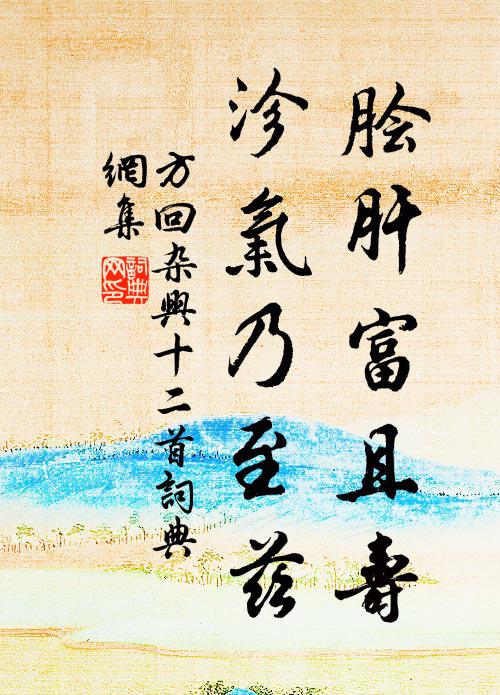 脍肝富且壽
沴氣乃至茲
方回杂興十二首詞典
網集
詞典
网印